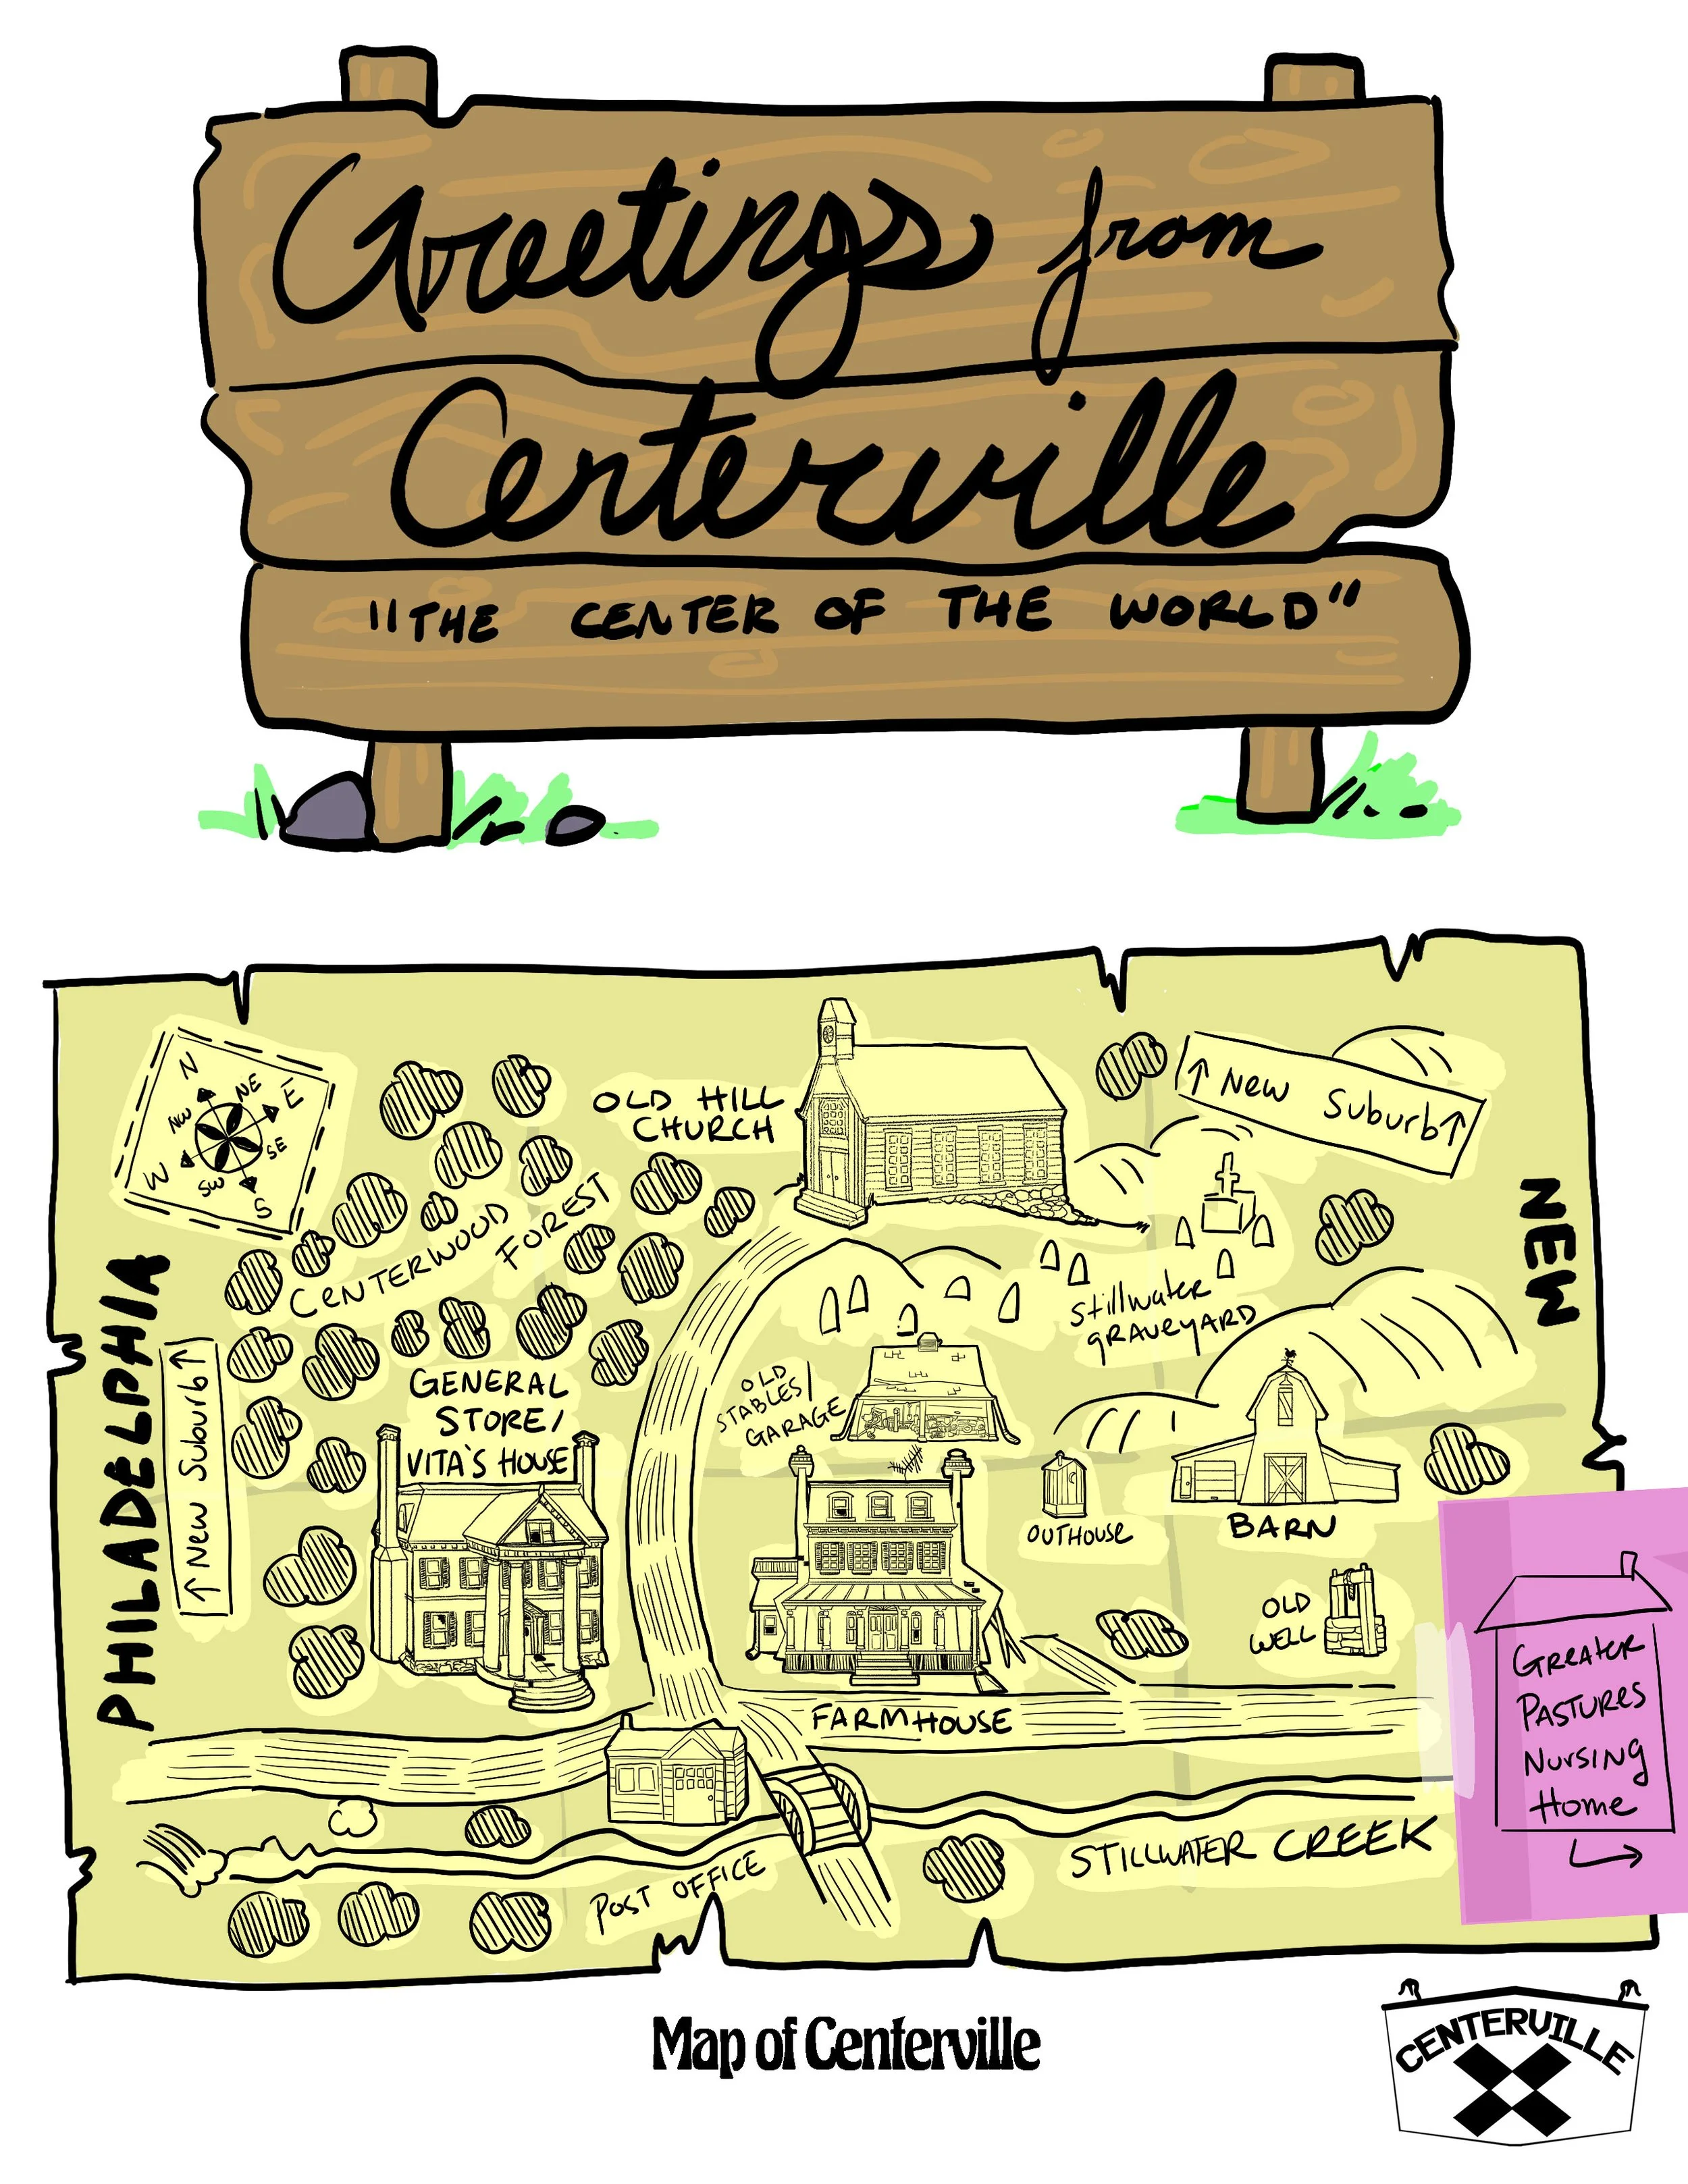 Greetings from
Centerville
"THE CENTER OF THE WORLD"
N
NE
E
SE
S
SW
W
NW
OLD HILL
CHURCH
↑ New Suburb ↑
CENTERWOOD
FOREST
NEW
PHILADELPHIA
Stillwater
GRAVEYARD
↑ New Suburb ↑
GENERAL
STORE/
VITA'S HOUSE
OLD
STABLES/
GARAGE
OUTHOUSE
BARN
OLD
WELL
FARMHOUSE
Greater
Pastures
Nursing
Home
POST OFFICE
STILLWATER CREEK
Map of Centerville
CENTERVILLE